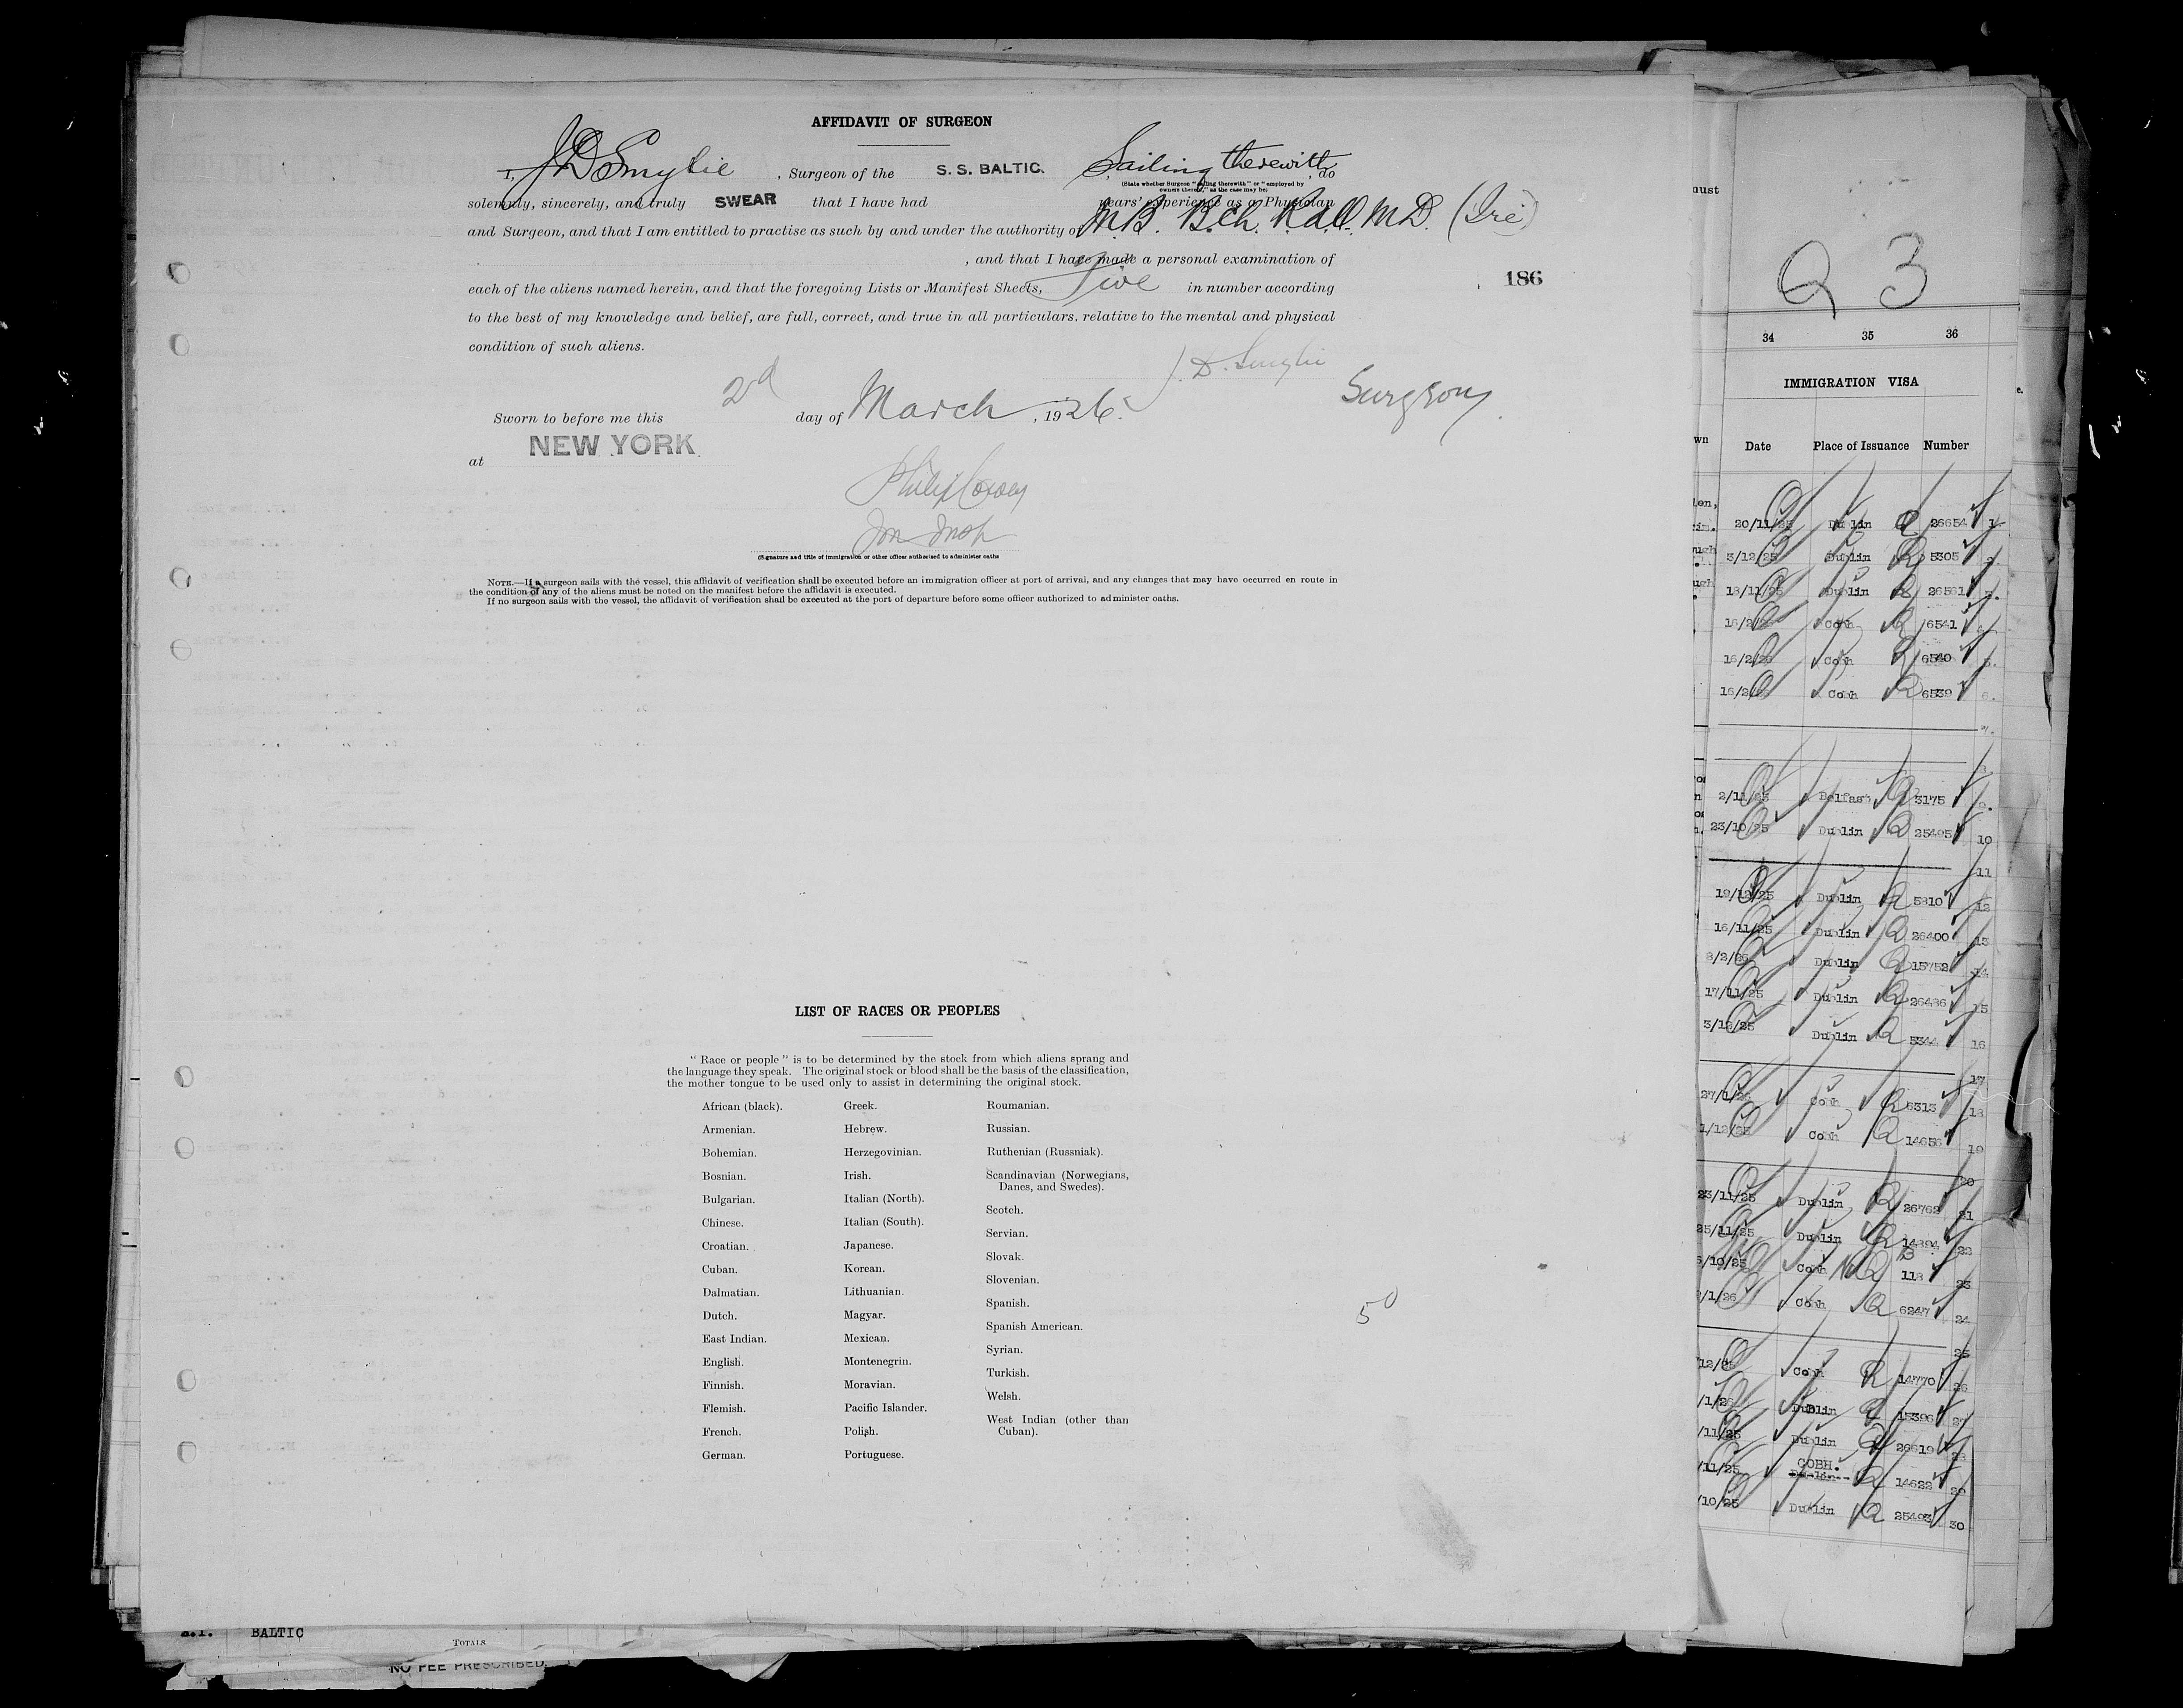 AFFIDAVIT OF SURGEON
I, J D Smylie, Surgeon of the S. S. BALTIC. Sailing therewith do
(State whether Surgeon "sailing therewith" or "employed by
owners thereof," as the case may be)
solemnly, sincerely, and truly SWEAR that I have had years' experience as a Physician
and Surgeon, and that I am entitled to practise as such by and under the authority of M.B. B.Ch. B.A.O. M.D. (Ire)
, and that I have made a personal examination of
each of the aliens named herein, and that the foregoing Lists or Manifest Sheets, Five in number according
to the best of my knowledge and belief, are full, correct, and true in all particulars, relative to the mental and physical
condition of such aliens.
186
J. D. Smylie Surgeon.
Sworn to before me this 2d day of March, 1926.
at NEW YORK
(Signature and title of immigration or other officer authorised to administer oaths
NOTE.—If a surgeon sails with the vessel, this affidavit of verification shall be executed before an immigration officer at port of arrival, and any changes that may have occurred en route in
the condition of any of the aliens must be noted on the manifest before the affidavit is executed.
If no surgeon sails with the vessel, the affidavit of verification shall be executed at the port of departure before some officer authorized to administer oaths.
LIST OF RACES OR PEOPLES
"Race or people" is to be determined by the stock from which aliens sprang and
the language they speak. The original stock or blood shall be the basis of the classification,
the mother tongue to be used only to assist in determining the original stock.
African (black).
Armenian.
Bohemian.
Bosnian.
Bulgarian.
Chinese.
Croatian.
Cuban.
Dalmatian.
Dutch.
East Indian.
English.
Finnish.
Flemish.
French.
German.
Greek.
Hebrew.
Herzegovinian.
Irish.
Italian (North).
Italian (South).
Japanese.
Korean.
Lithuanian.
Magyar.
Mexican.
Montenegrin.
Moravian.
Pacific Islander.
Polish.
Portuguese.
Roumanian.
Russian.
Ruthenian (Russniak).
Scandinavian (Norwegians,
Danes, and Swedes).
Scotch.
Servian.
Slovak.
Slovenian.
Spanish.
Spanish American.
Syrian.
Turkish.
Welsh.
West Indian (other than
Cuban).
50
BALTIC
TOTALS
NO FEE PRESCRIBED.
Q 3
34 35 36
IMMIGRATION VISA
Date Place of Issuance Number
20/11/25 Dublin Q 26654 1
3/12/25 Dublin Q 5305 2.
18/11/25 Dublin Q 26561 3.
16/2/26 Cobh Q 6541 4.
16/2/26 Cobh Q 6540 5.
16/2/26 Cobh Q 6539 6.
7.
8
2/11/25 Belfast Q 3175 9.
23/10/25 Dublin Q 25495 10
11
19/12/25 Dublin Q 5810 12
16/11/25 Dublin Q 26400 13
8/2/26 Dublin Q 15752 14
17/11/25 Dublin Q 26436 15
3/12/25 Dublin Q 5344 16
17
27/1/26 Cobh Q 6313 18
1/12/25 Cobh Q 14656 19
20
23/11/25 Dublin Q 26762 21
25/11/25 Dublin Q 22
/10/25 Cobh NQ 118 23
/1/26 Cobh Q 6247 24
25
12/25 Cobh Q 14770 26
/1/26 Dublin Q 15396 27
/11/25 Dublin Q 26619 28
/11/25 COBH. Dublin Q 14622 29
/10/25 Dublin Q 25493 30